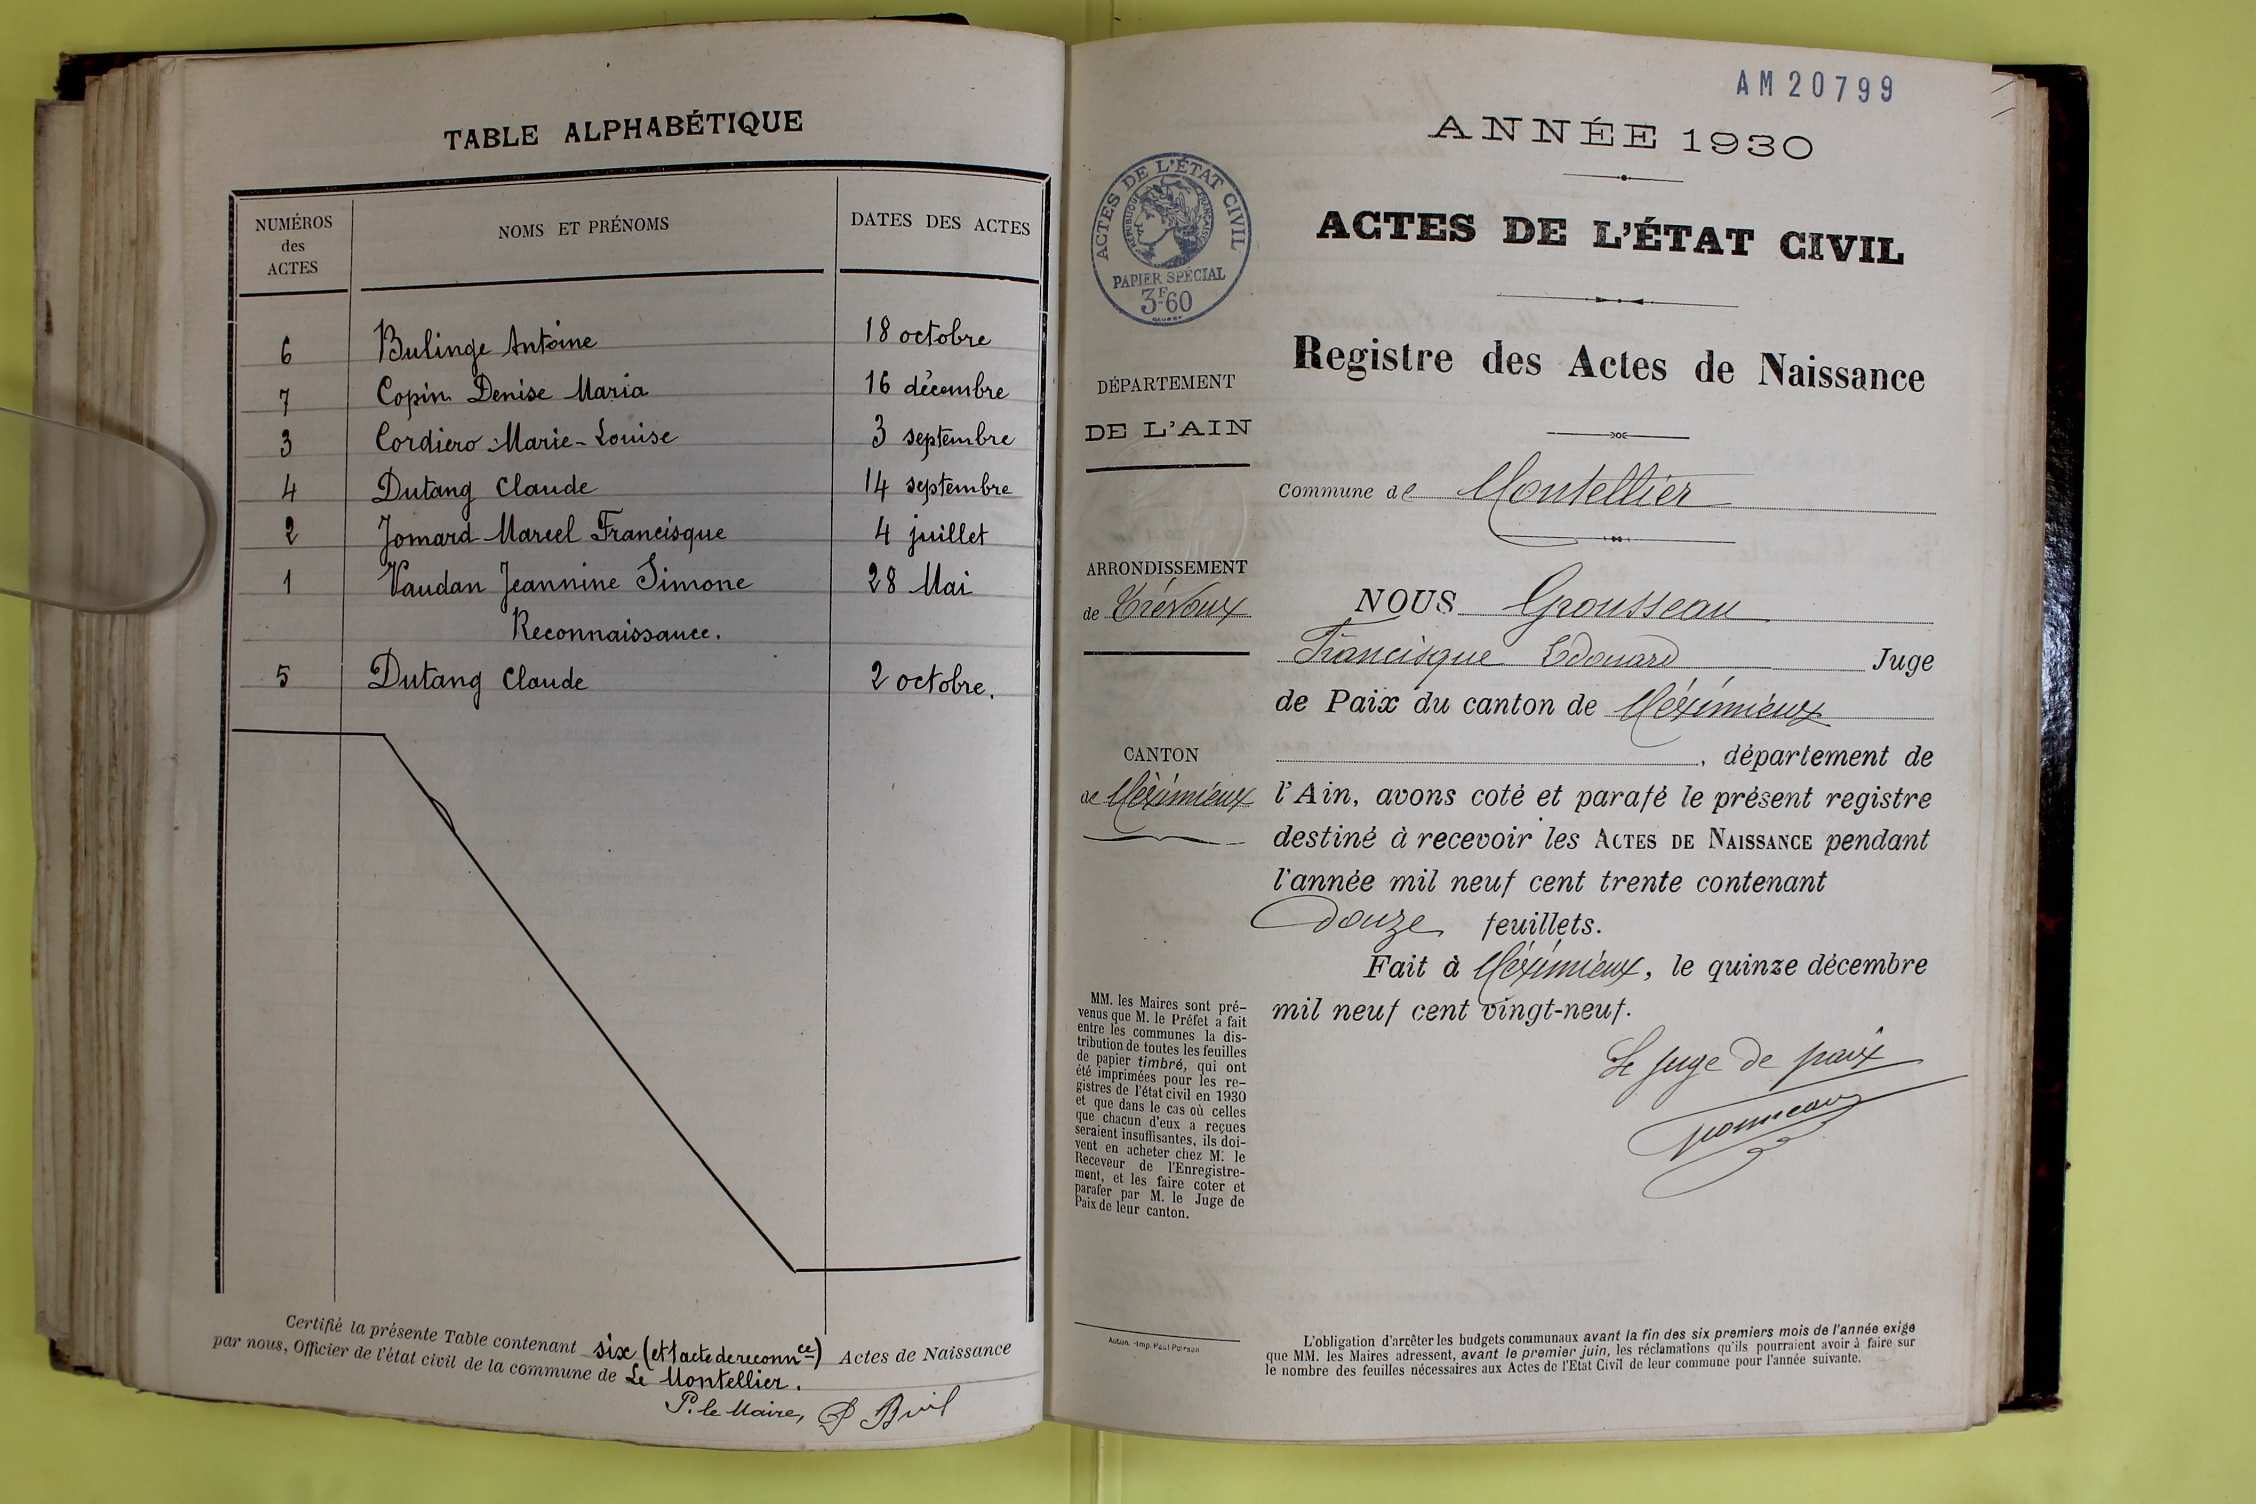 TABLE ALPHABÉTIQUE
NUMÉROS des ACTES
NOMS ET PRÉNOMS
DATES DES ACTES
6 Bulinge Antoine 18 octobre
7 Copin Denise Maria 16 décembre
3 Cordiero Marie-Louise 3 septembre
4 Dutang Claude 14 septembre
2 Jomard Marcel Francisque 4 juillet
1 Vaudan Jeannine Simone 28 Mai
Reconnaissance.
5 Dutang Claude 2 octobre.
Certifié la présente Table contenant six (et 1 acte de reconnce) Actes de Naissance
par nous, Officier de l'état civil de la commune de Le Montellier.
P. le Maire,
AM20799
ANNÉE 1930
ACTES DE L'ÉTAT CIVIL
Registre des Actes de Naissance
ACTES DE L'ÉTAT CIVIL
RÉPUBLIQUE FRANÇAISE
PAPIER SPÉCIAL
3F60
DÉPARTEMENT
DE L'AIN
ARRONDISSEMENT
de Trévoux
CANTON
de Méximieux
MM. les Maires sont pré-
venus que M. le Préfet a fait
entre les communes la dis-
tribution de toutes les feuilles
de papier timbré, qui ont
été imprimées pour les re-
gistres de l'état civil en 1930
et que dans le cas où celles
que chacun d'eux a reçues
seraient insuffisantes, ils doi-
vent en acheter chez M. le
Receveur de l'Enregistre-
ment, et les faire coter et
parafer par M. le Juge de
Paix de leur canton.
Autun. - Imp. Paul Poirson
Commune de Montellier
NOUS Grousseau
Francisque Edouard Juge
de Paix du canton de Méximieux
, département de
l'Ain, avons coté et parafé le présent registre
destiné à recevoir les ACTES DE NAISSANCE pendant
l'année mil neuf cent trente contenant
Douze feuillets.
Fait à Méximieux, le quinze décembre
mil neuf cent vingt-neuf.
Le Juge de paix
L'obligation d'arrêter les budgets communaux avant la fin des six premiers mois de l'année exige
que MM. les Maires adressent, avant le premier juin, les réclamations qu'ils pourraient avoir à faire sur
le nombre des feuilles nécessaires aux Actes de l'Etat Civil de leur commune pour l'année suivante.